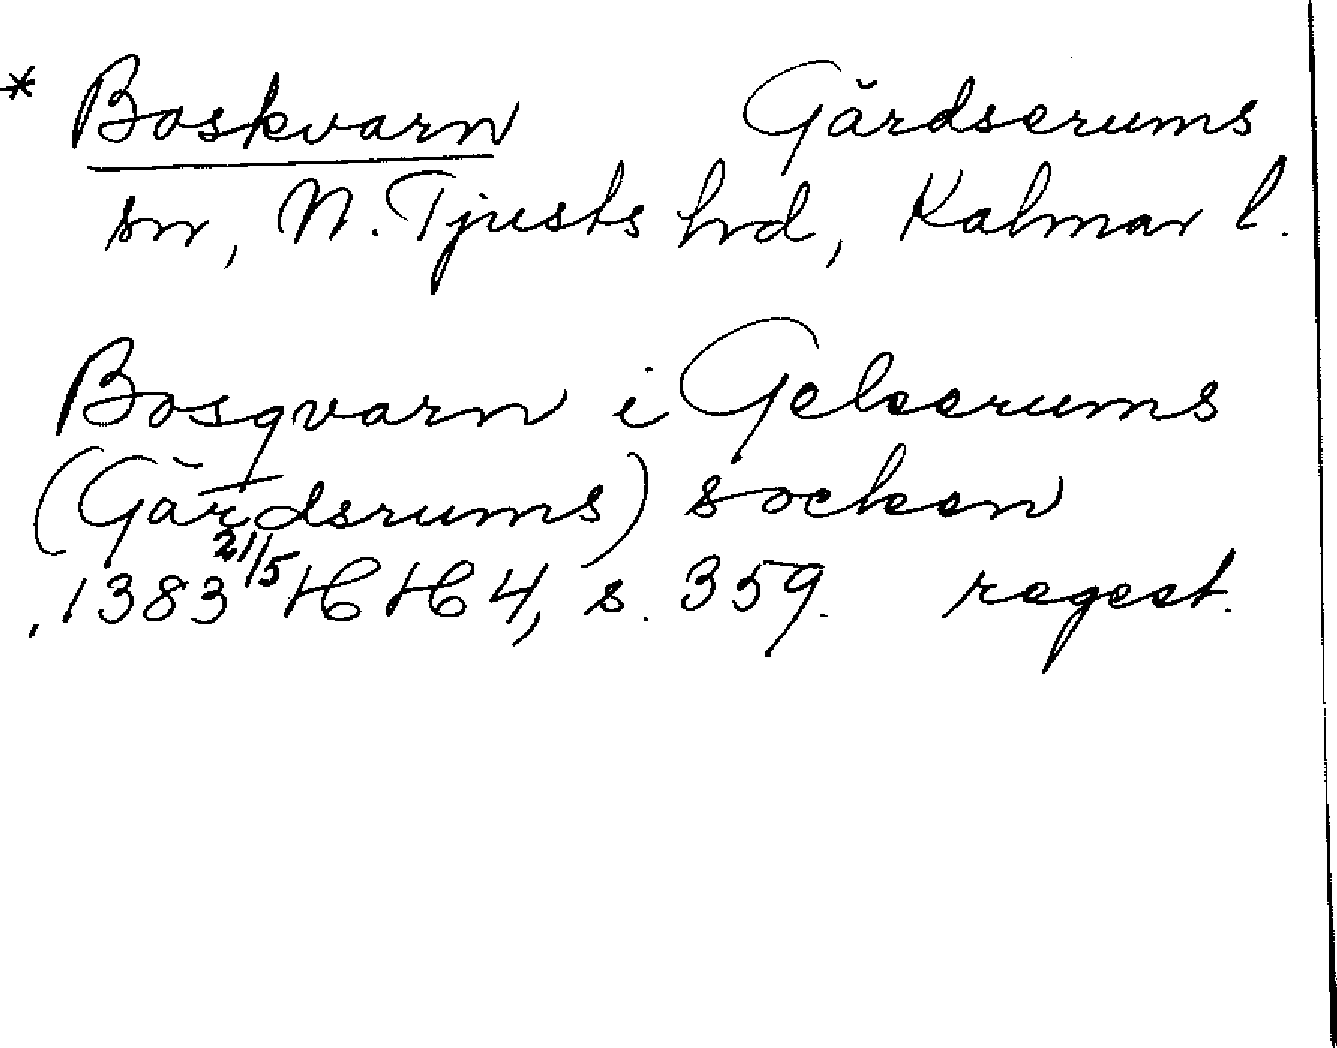 * Boskvarn Gärdserums
sn, N. Tjusts hrd, Kalmar l.
Bosqvarn i Gelserums
(Gärdsrums) socken
1383 21/5 HH 4, s. 359. regest.